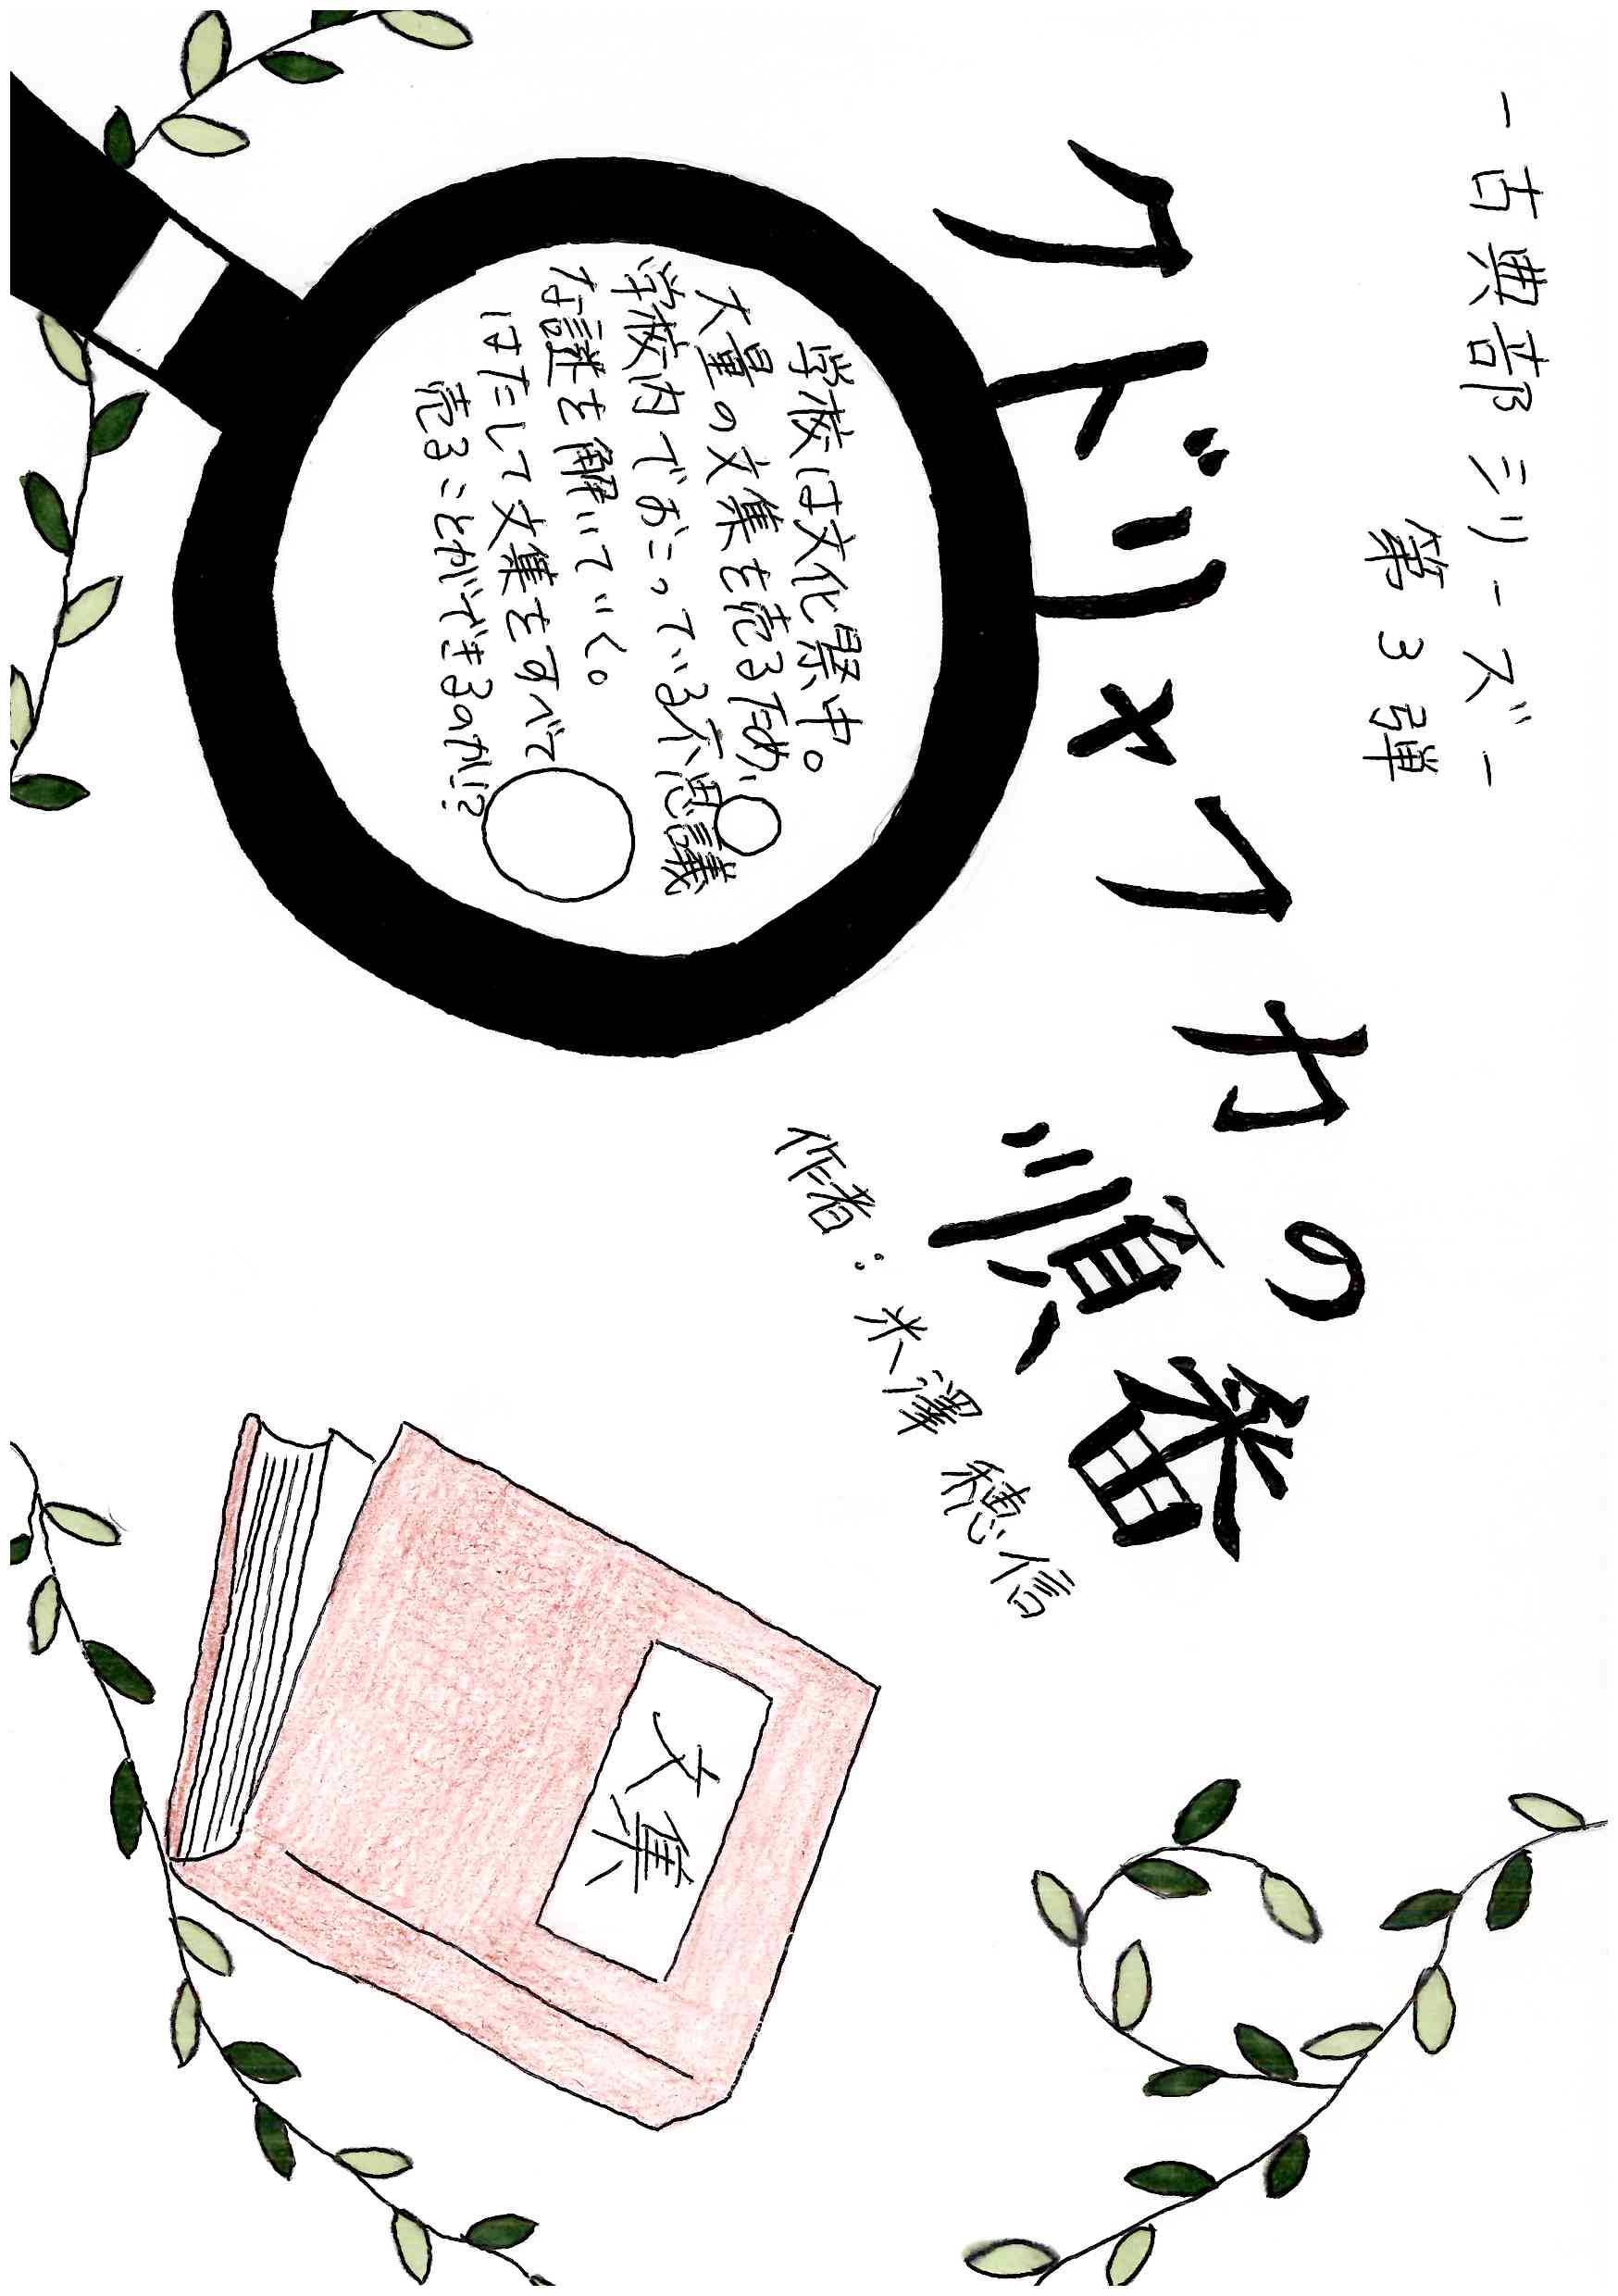 -古典部シリーズ-
第3弾
クドリャフカの
順番
作者:米澤穂信
学校は文化祭中。
大量の文集を売るため、
学校内でおこっている不思議
な謎を解いていく。
はたして文集をすべて
売ることができるのか!?
文集